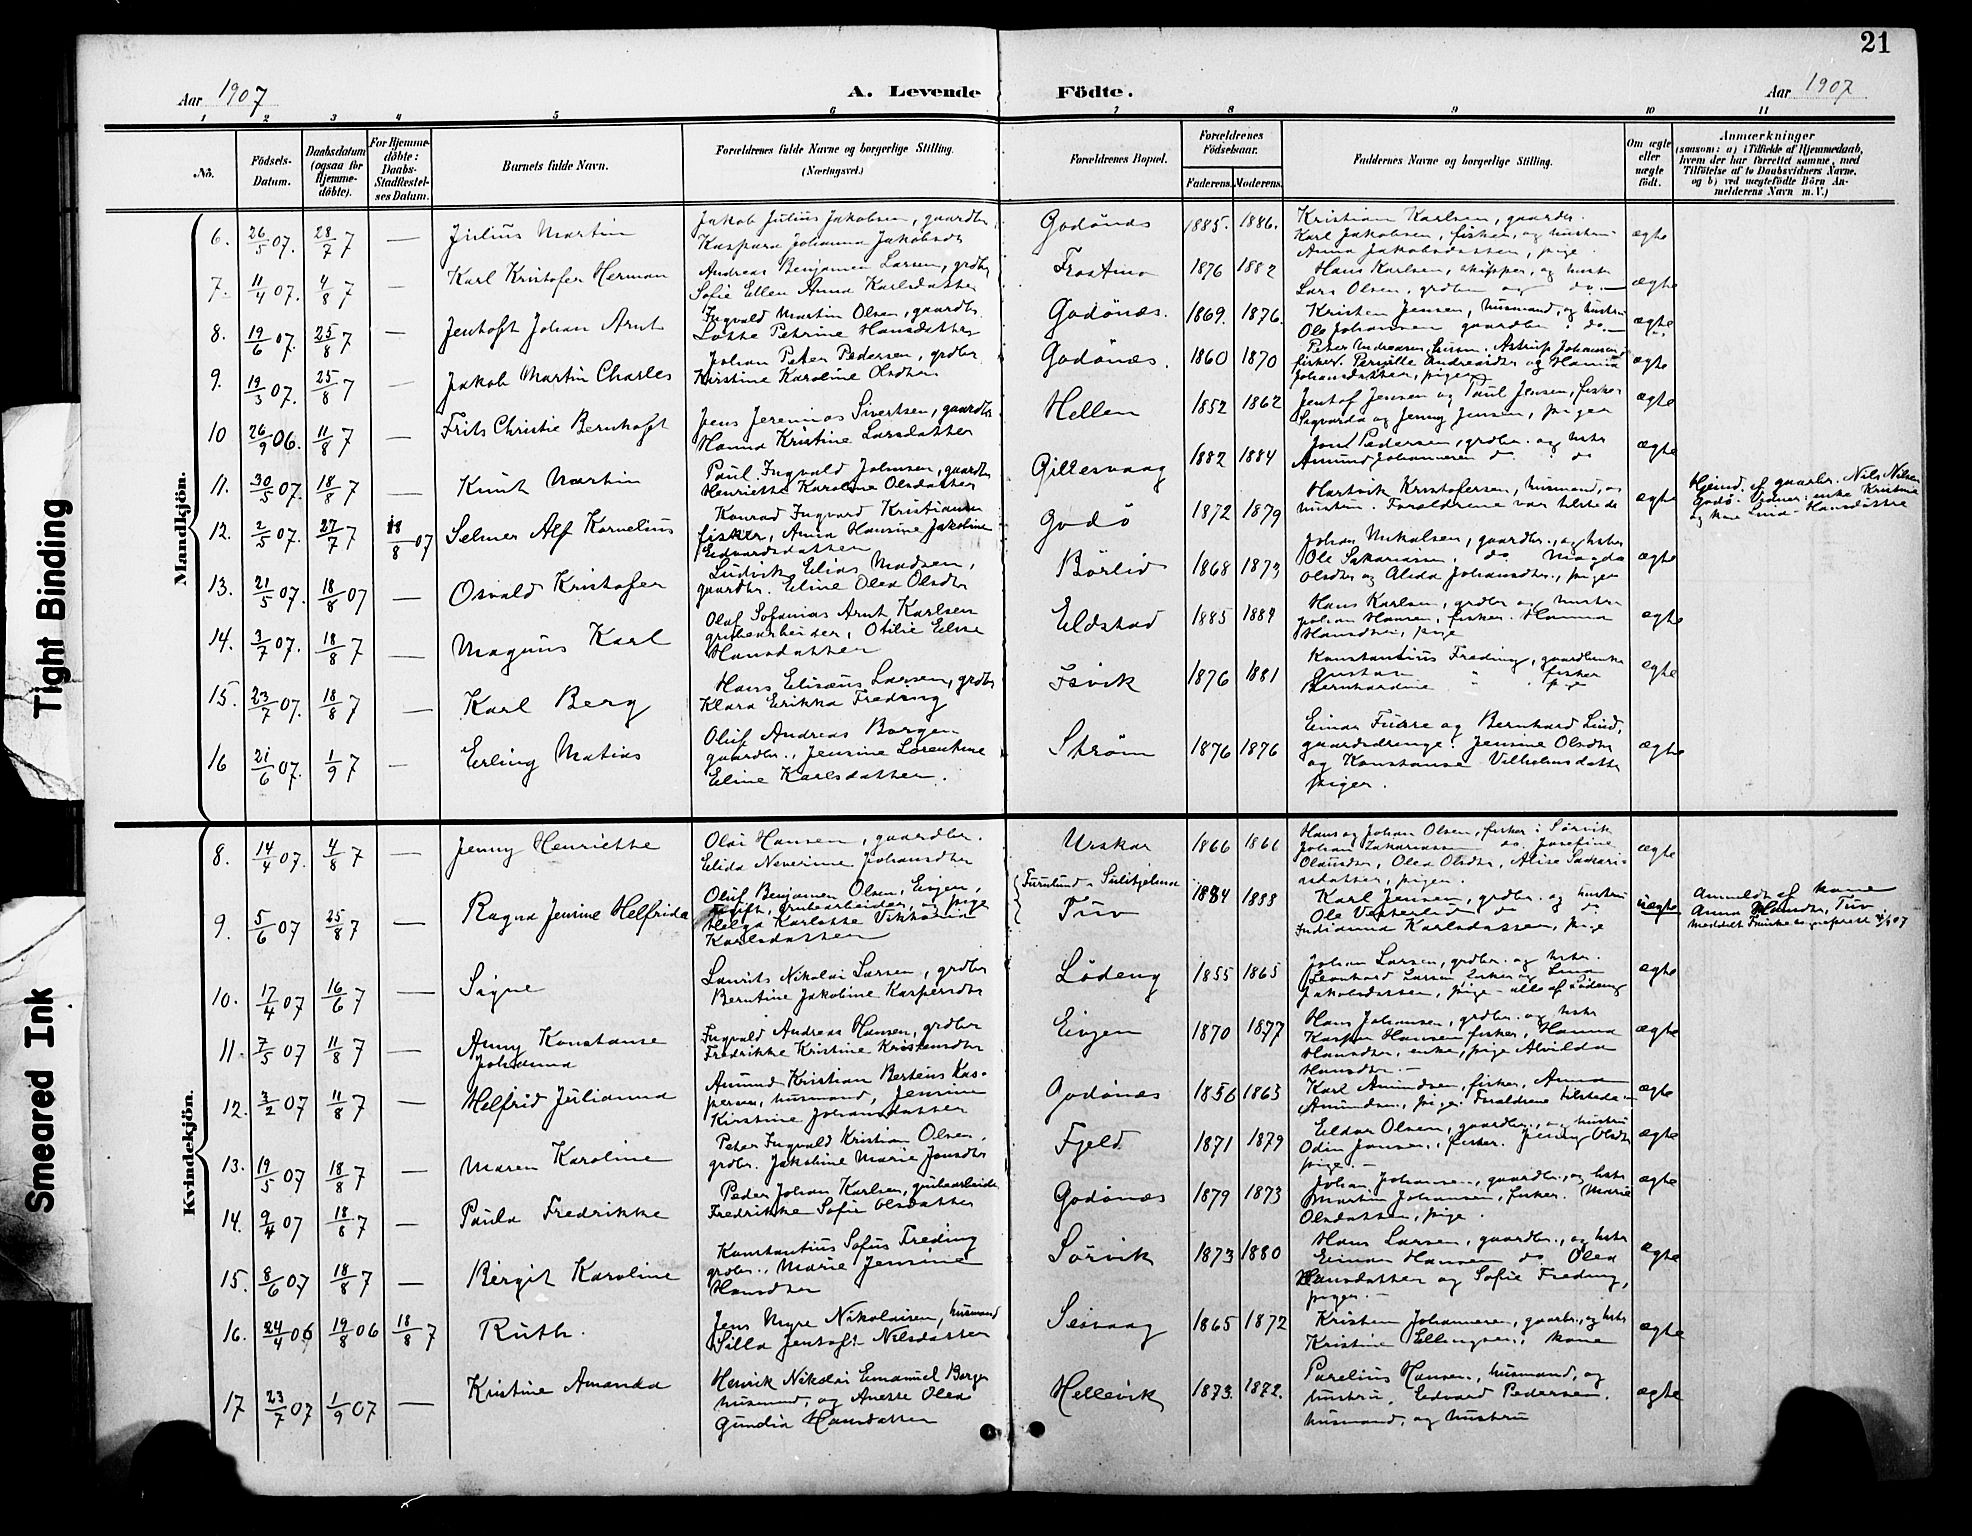 21
Aar 1907 A. Levende Födte. Aar 1907
1 2 3 4 5 6 7 8 9 10 11
No. Födsels-Datum. Daabsdatum (ogsaa for Hjemmedöbte). For Hjemmedöbte: Daabs-Stadfæstelses Datum. Barnets fulde Navn. Forældrenes fulde Navne og borgerlige Stilling. (Næringsvei.) Forældrenes Bopæl. Forældrenes Födselsaar. Faderens. Moderens. Faddernes Navne og borgerlige Stilling. Om ægte eller uægte født. Anmærkninger (saasom: a) i Tilfælde af Hjemmedaab, hvem der har forrettet samme, med Tilföielse af to Daabsvidners Navne, og b) ved uægtefödte Börn Anmelderens Navn m. V.)
Mandkjön.
6. 26/5 07. 28/7 7 — Julius Martin Jakob Julius Jakobsen, gaardbr Kaspara Johanna Jakobsdtr Godönæs 1885. 1886. Kristian Karlsen, gaardbr. Karl Jakobsen, fisker, og hustru Anna Jakobsdatter, pige. ægte
7. 11/4 07. 4/8 7 — Karl Kristofer Herman Andreas Benjamin Larsen, grdbr Sofie Ellen Anna Karlsdatter 1876 1882 Hans Karlsen, skipper, og hustr Lars Olsen, grdbr og do — ægte
8. 19/6 07. 25/8 7 — Jentoft Johan Arnt Ingvald Martin Olsen, gaardbr. Lotte Petrine Hansdatter Godönæs. 1869. 1876. Kristen Jensen, husmand, og hustru Ole Johansen gaardbr. do — ægte
9. 19/3 07. 25/8 7 — Jakob Martin Charles Johan Peter Pedersen, grdbr. Kirstine Karoline Olsdtr Godönæs. 1860 1870 Peter Andreassen, Astrup Johansen fisker. Pernille Andreasdtr og Hanna Johansdatter, piger ægte
10 26/9 06. 11/8 7 — Frits Christie Bernhoft Jens Jeremias Sivertsen, gaardbr Hanna Kristine Larsdatter Hellen 1852 1862 Jentof Jensen og Paul Jensen, fisker Sigvarda og Jenny Jensen, piger ægte
11. 30/5 07. 18/8 7 — Knut Martin Paul Ingvald Johnsen, gaardbr Henriette Karoline Olsdatter Gillesvaag 1882 1884 Pedersen, grdbr. og hstr Amund Johannesen do do ægte
12. 2/5 07. 27/7 7 18/8 07 Selmer Alf Kornelius Konrad Ingvard Kristiansen fisker, Anna Hansine Jakobine Edvardsdatter Godö 1872 1879 Hartvik Kristofersen, husmand, og hustru. Forældrene var tilstede ægte Hjemd. af gaardbr. Nils Nilsen Godö. Vidner: enke Kristine og kone Hansdatter
13. 21/5 07. 18/8 07 — Osvald Kristofer Ludvik Elias Madsen, gaardbr. Eline Olea Olsdtr Börlid 1868 1873 Johan Mikalsen, gaardbr., og hstr Ole Sakariasen, do Magda Olsdtr og Alida Johansdtr., piger ægte
14. 3/7 07. 18/8 7 — Magnus Karl Olaf Sofanias Arnt Karlsen grubearbeider, Otilie Eline Hansdatter Eldstad 1885 1884 Hans Karlsen, grdbr og hustru Johan Hansen, fisker. Hanna Hansdtr, pige ægte
15. 23/7 07. 18/8 7 — Karl Berg Hans Elisæus Larsen, grdbr Klara Erikka Freding Isvik 1876 1881 Konstantius Freding, gaardbruker Gustav " fisker Bernhardine " pige ægte
16 21/6 07. 1/9 7 — Erling Matias Oluf Andreas Borgen gaardbr., Jensine Lorentine Eline Karlsdatter. Ström 1876 1876 Einar Furre og Bernhard Lind, gaardsdrenge. Jensine Olsdtr og Konstanse Vilhelmsdatter piger. ægte
Kvindekjön.
8. 14/4 07. 4/8 7 — Jenny Henriette Olai Hansen, gaardbr. Elida Neverine Johansdtr Urskar 1866 1866 Hans og Johan Olsen, fisker i Sörvik Johan Zakariassen do. Josefine Olausdtr, Olea Olsdtr, Alise Sakariasdatter, piger. ægte
9. 5/6 07 25/8 7 — Ragna Jensine Helfrida Oluf Benjamin Olsen, Evjen, Ugift, Grubearbeider, og pige Helga Karlotte Viktoria Karlsdatter Furulund - Sulitjelma Tuv 1884 1888 Karl Jensen, grdbr. og hustru Ole Vesterlid do do Indianna Karlsdatter, pige uægte Anmeldt af kone Anna Hansdtr, Tuv
10. 17/4 07 16/6 7 — Signe Laurits Nikolai Larsen, grdbr Berntine Jakobine Kaspersdtr Lödeng 1855 1865 Johan Larsen, grdbr. og hstr. Leonhard Larsen fisker og Lina Jakobsdatter, pige - alle af Lödeng ægte
11. 7/5 07 11/8 7 — Anny Konstanse Johanna Ingvald Andreas Hansen, grdbr Fredrikke Kristine Kristensdtr Evjen 1870 1877 Hans Johansen, grdbr. og hstr Kasper Hansen fisker, Hanna Hansdtr, enke, pige Alvilda Hansdtr. — ægte
12. 3/2 07 11/8 7 — Helfrid Julianna Amund Kristian Berteus Kaspersen, husmand, Jensine Kirstine Johansdatter Godönæs 1856 1863 Karl Amundsen, fisker, Anna Amundsen, pige. Forældrene tilstede — ægte
13. 19/5 07 18/8 7 — Maren Karoline Peter Ingvald Kristian Olsen, grdbr. Jakobine Marie Jonsdtr Fjeld 1871 1879 Eldor Olsen, gaardbr., og hustru Odin Jensen, fisker. Jenny Olsdtr pige. — ægte
14. 9/4 07 18/8 7 — Paula Fredrikke Peder Johan Karlsen, grubearbeider Fredrikke Sofie Olsdatter Godönæs 1879 1873 Johan Johansen, gaardbr., og hstr Martin Johansen, fisker. Marie Olsdatter, pige. ægte
15. 8/6 07 18/8 7 — Birgit Karoline Konstantius Sofus Freding grdbr., Marie Jensine Hansdtr Sörvik 1873 1880 Hans Larsen, gaardbr., og hstr Einar Hansen do Olea Hansdatter og Sofie Freding, piger. — ægte
16. 24/4 06 19/8 06 18/8 7 Ruth. Jens Myre Nikolaisen, husmand Silla Jentoft Nilsdatter Seivaag 1865 1872 Kristen Johannesen, gaardbr., og hstr Kristine Ellingsen, kone ægte
17 23/7 07 1/9 07 — Kristine Amanda Henrik Nikolai Emanuel Borge husmand, og Anette Olea Gundia Hansdatter Hellevik 1873. 1872. Parelius Hansen, husmand, og hustru, Edvard Pedersen, husmand, og hustru ægte
Tight Binding
Smeared Ink